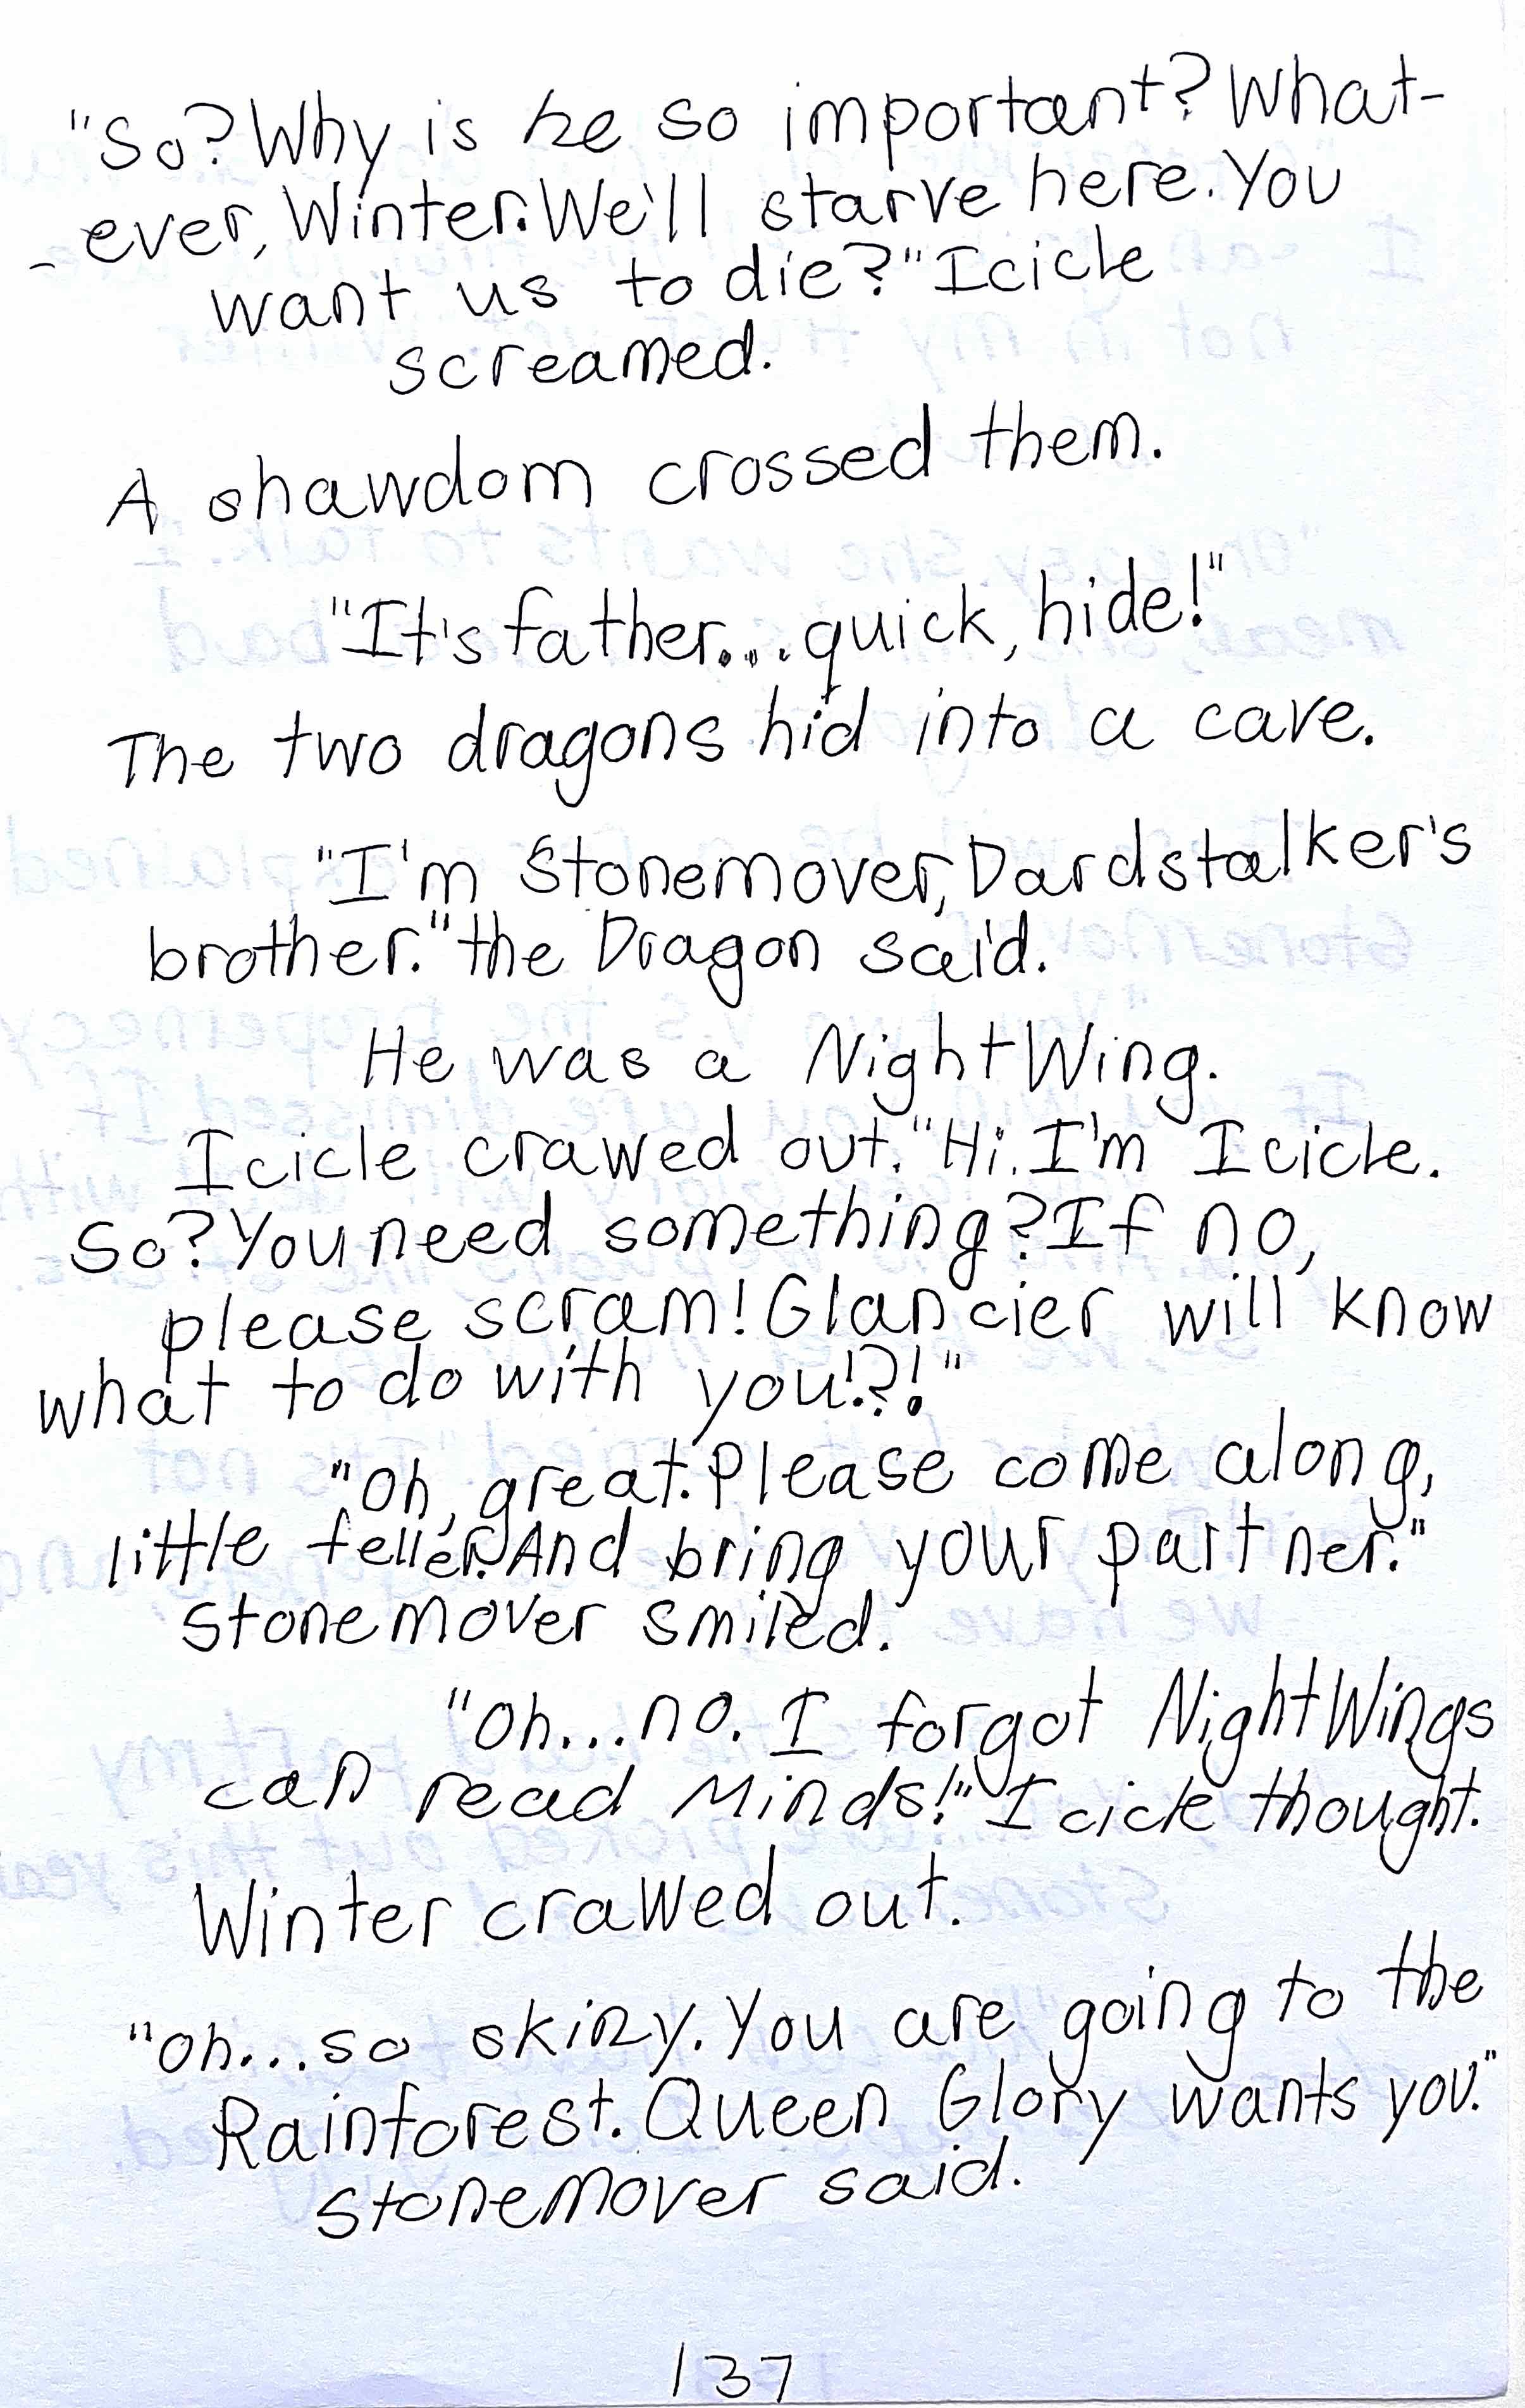 "So? Why is he so important? What-
-ever, Winter. We'll starve here. You
want us to die?" Icicle
screamed.
A shawdom crossed them.
"It's father... quick, hide!"
The two dragons hid into a cave.
"I'm Stonemover, Dardstalker's
brother." the Dragon said.
He was a NightWing.
Icicle crawed out. "Hi. I'm Icicle.
So? You need something? If no,
please scram! Glancier will know
what to do with you!?!"
"Oh, great. Please come along,
little feller. And bring your partner."
Stonemover smiled.
"Oh...no. I forgot NightWings
can read Minds!" Icicle thought.
Winter crawed out.
"Oh...so skiny. You are going to the
Rainforest. Queen Glory wants you."
Stonemover said.
137